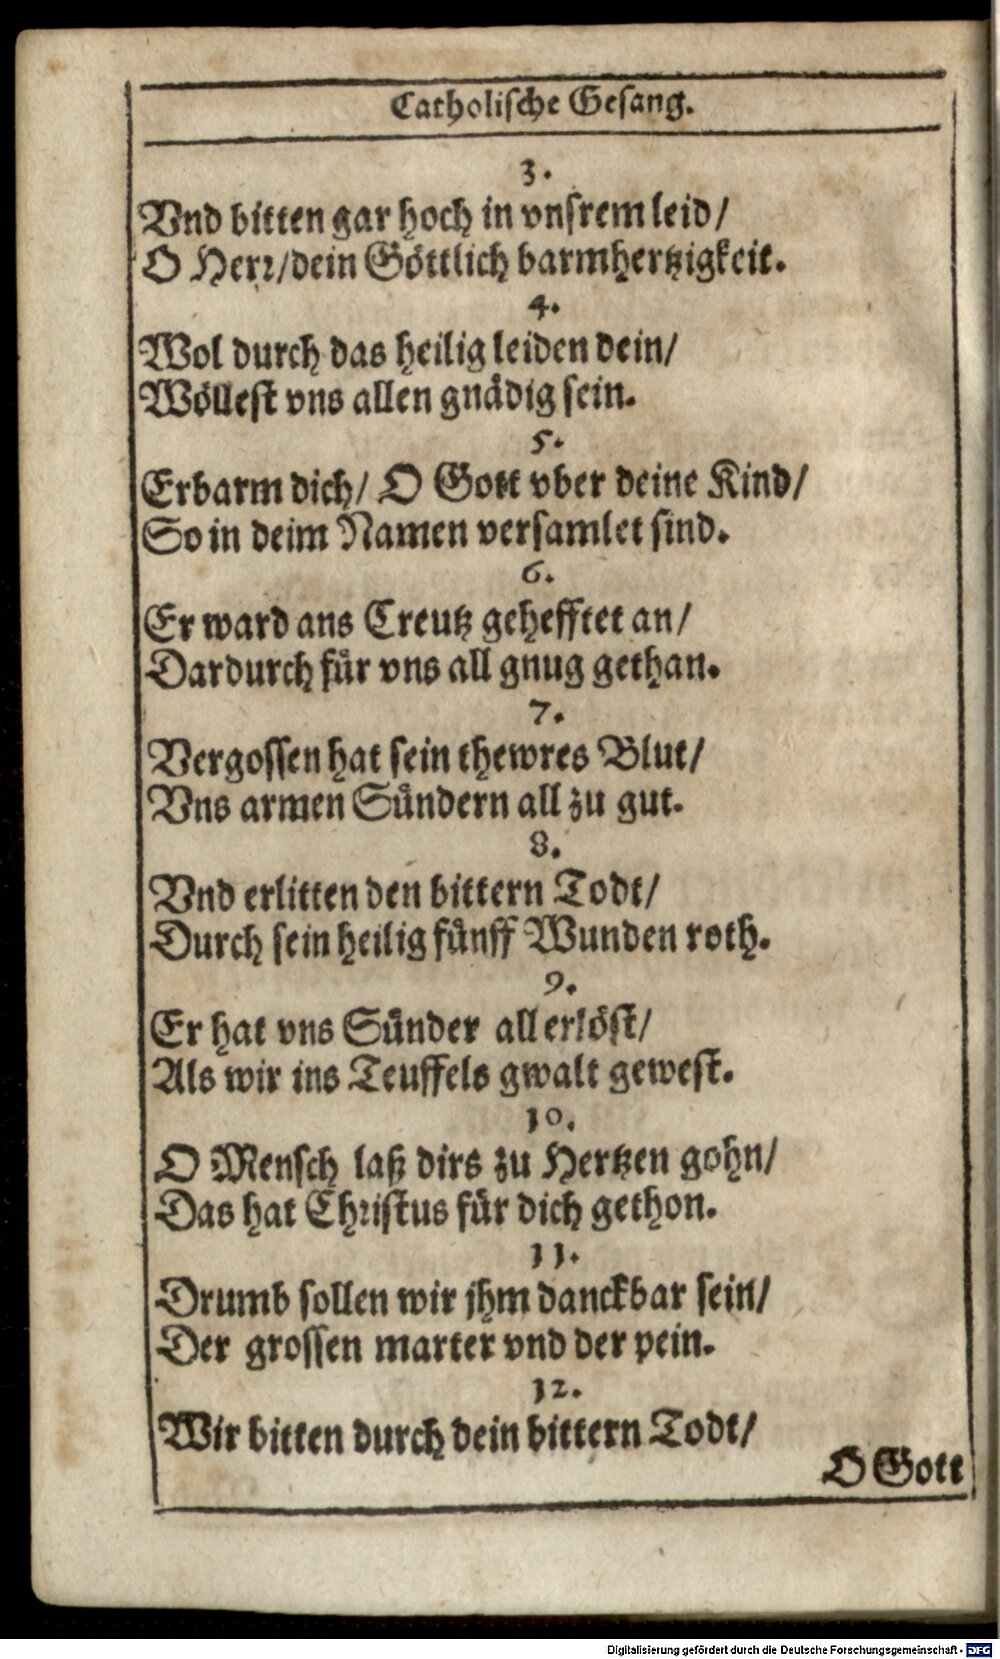 Catholische Gesang.
3.
Vnd bitten gar hoch in vnsrem leid/
O Herr/dein Göttlich barmhertzigkeit.
4.
Wol durch das heilig leiden dein/
Wöllest vns allen gnädig sein.
5.
Erbarm dich/ O Gott vber deine Kind/
So in deim Namen versamlet sind.
6.
Er ward ans Creutz gehefftet an/
Dardurch für vns all gnug gethan.
7.
Vergossen hat sein thewres Blut/
Vns armen Sündern all zu gut.
8.
Vnd erlitten den bittern Todt/
Durch sein heilig fünff Wunden roth.
9.
Er hat vns Sünder all erlöst/
Als wir ins Teuffels gwalt gewest.
10.
O Mensch laß dirs zu Hertzen gohn/
Das hat Christus für dich gethon.
11.
Drumb sollen wir jhm danckbar sein/
Der grossen marter vnd der pein.
12.
Wir bitten durch dein bittern Todt/
O Gott
Digitalisierung gefördert durch die Deutsche Forschungsgemeinschaft - DFG